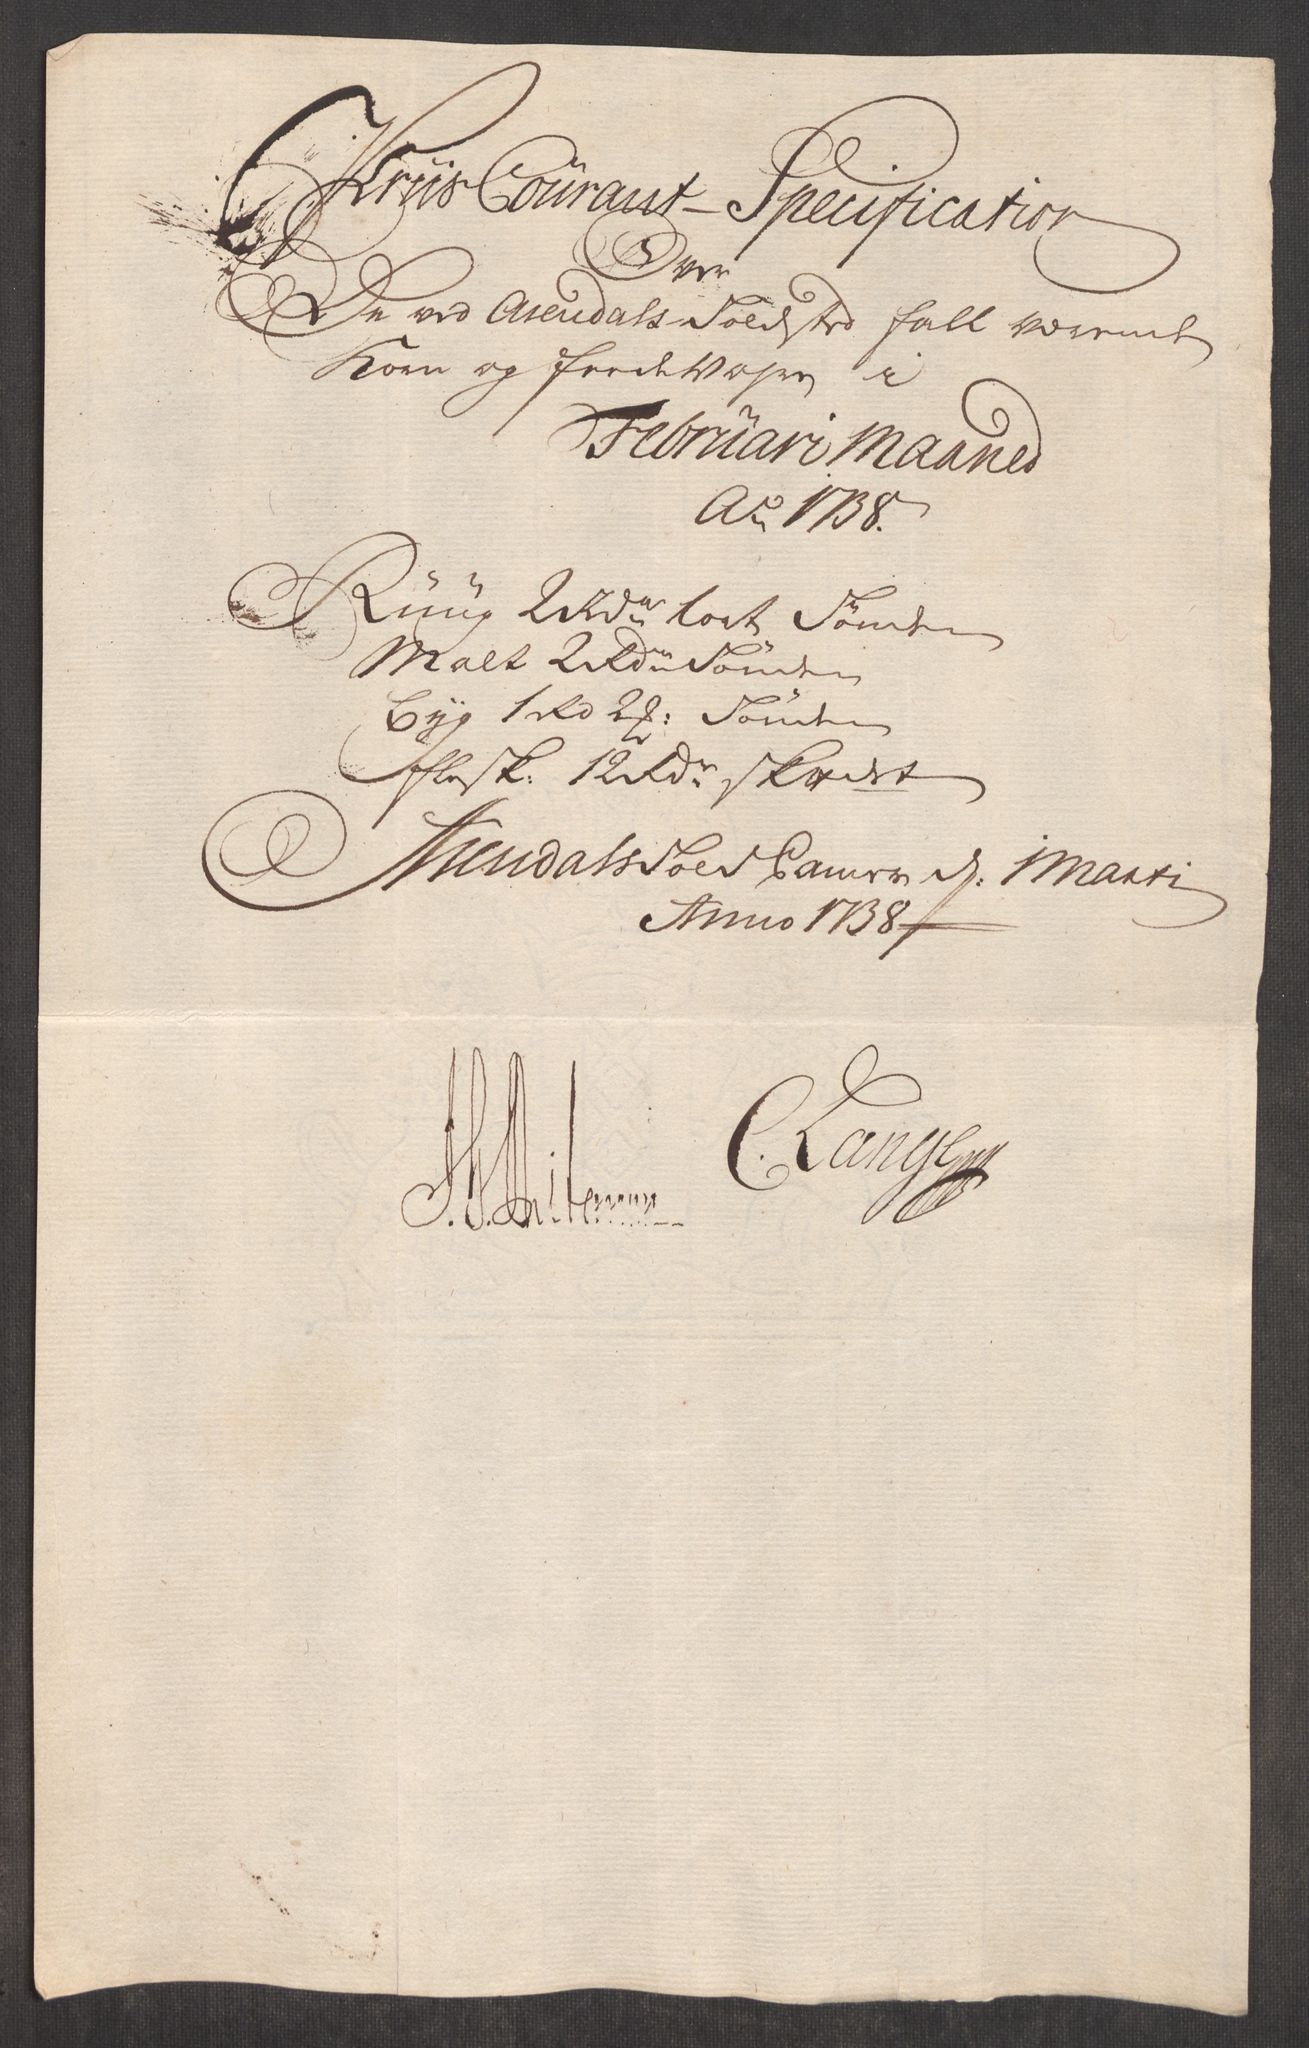 Priis Coürant – Specification
Over
De ved Arendals Toldsted fall værende
Korn og fæede Vahre i
Februari Maaned
Ao 1738.
Rüüg 2 Rdr Tönden
Malt 2 Rdr Tönden
Byg 1 Rd 2 Tönden
Flesk: 12 Rdr
Arendals Told Camer d: 1 Marti
Anno 1738
C. Lange